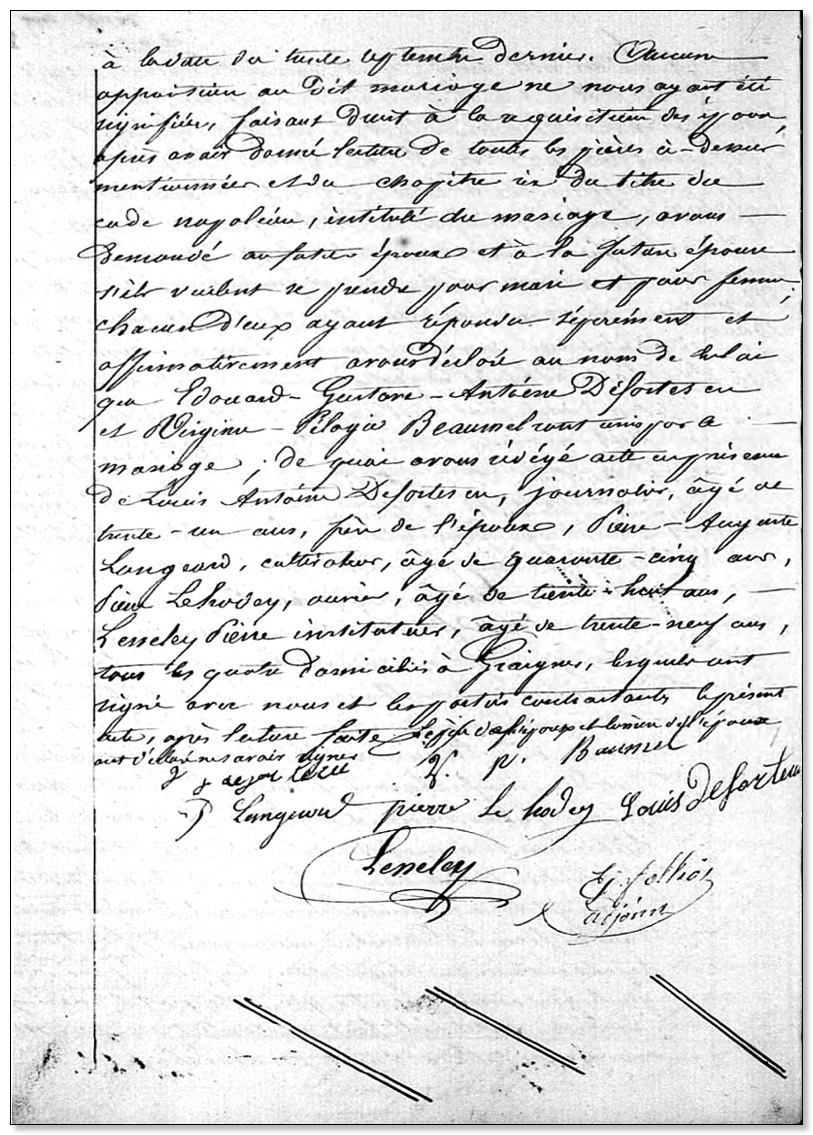 à la date du trente septembre dernier. Aucune
opposition au dit mariage ne nous ayant été
signifiée, faisant droit à la réquisition des époux,
après avoir donné lecture de toutes les pièces ci-dessus
mentionnées et du chapitre six du titre du
code napoléon, intitulé du mariage, avons
demandé au futur époux et à la future épouse
s'ils veulent se prendre pour mari et pour femme,
chacun d'eux ayant répondu séparément et
affirmativement avons déclaré au nom de la loi
que Edouard-Gustave-Antoine Desfortes en
et Virginie-Pélagie Beaumel sont unis par le
mariage; de quoi avons rédigé acte en présence
de Louis Antoine Desfortes en, journalier, âgé de
trente-un ans, père de l'époux, Pierre-Auguste
Langeard, cultivateur, âgé de quarante-cinq ans,
Pierre Lehodey, ouvrier, âgé de trente-huit ans,
Lesseley Pierre instituteur, âgé de trente-neuf ans,
tous les quatre domiciliés à Graignes, lesquels ont
signé avec nous et les parties contractantes le présent
acte, après lecture faite et la mère de l'époux
ont déclaré ne savoir signer
P. Baumel
Langeard pierre le hodey Louis Desforten
Lesseley
adjoint